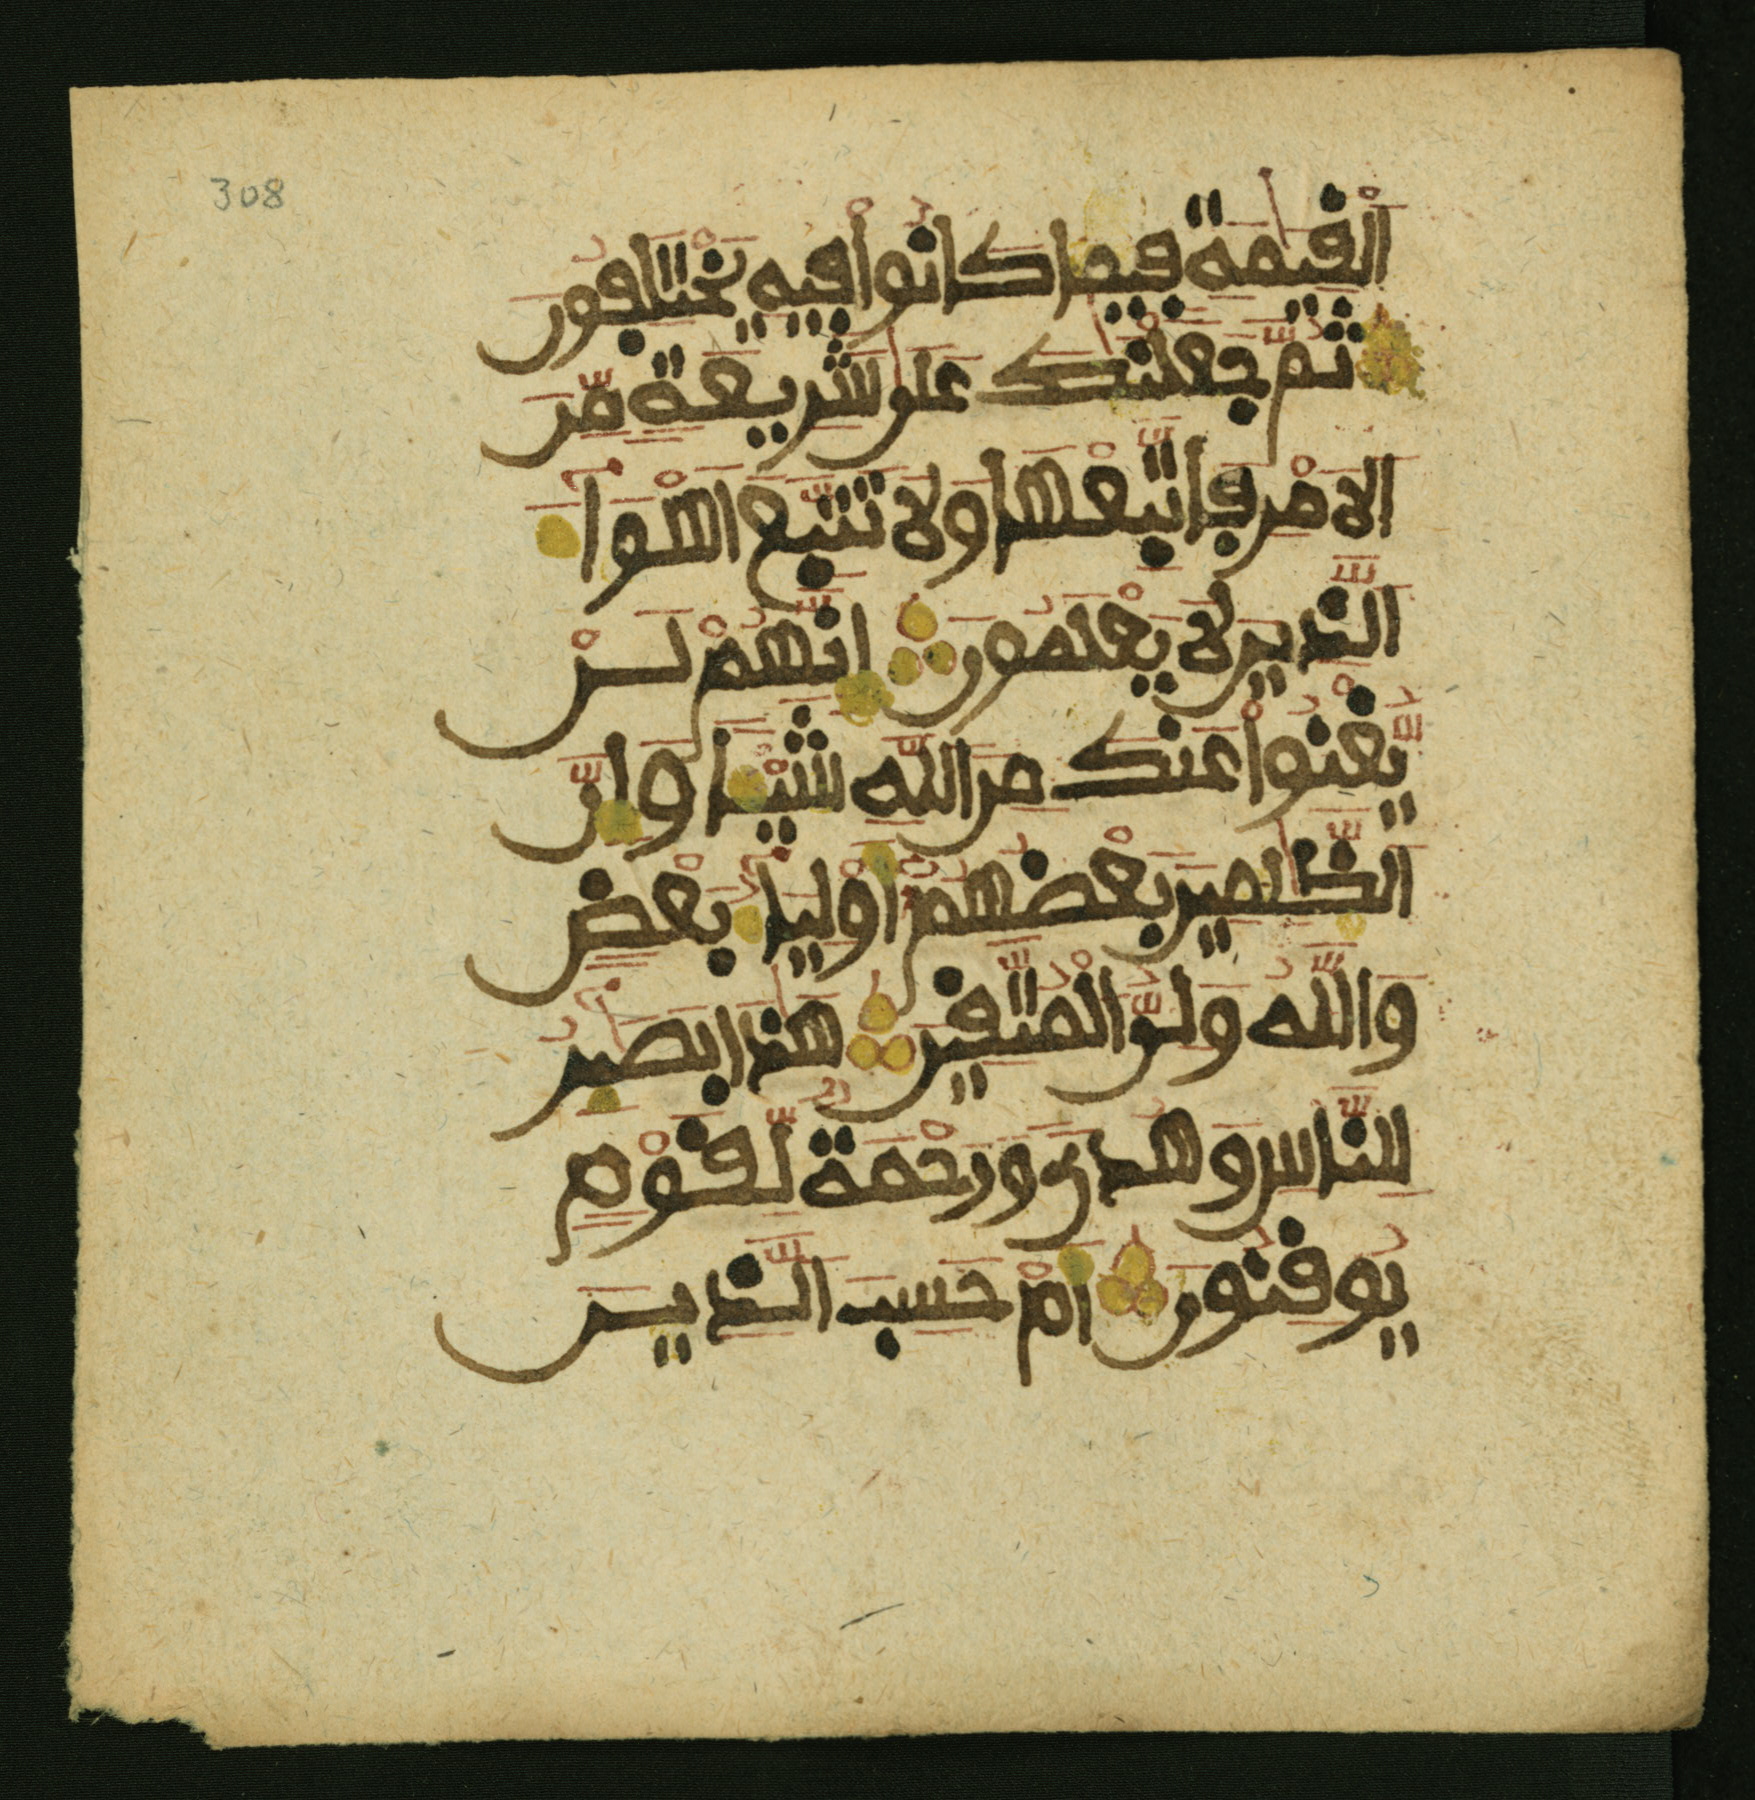 308
الْقِيَٰمَةِ فِيمَا كَانُواْ فِيهِ يَخْتَلِفُونَ
ثُمَّ جَعَلْنَٰكَ عَلَىٰ شَرِيعَةٍ مِّنَ
الَامْرِ فَاتَّبِعْهَا وَلَا تَتَّبِعَ اَهْوَآءَ
الَّذِينَ لَا يَعْلَمُونَ إِنَّهُمْ لَنْ
يُّغْنُواْ عَنكَ مِنَ اللَّهِ شَيْـًٔا وَإِنَّ
الظَّٰلِمِينَ بَعْضُهُمُ أَوْلِيَآءُ بَعْضٍ
وَاللَّهُ وَلِيُّ الْمُتَّقِينَ هَٰذَا بَصَٰٓئِرُ
لِلنَّاسِ وَهُدًى وَرَحْمَةٌ لِّقَوْمٍ
يُوقِنُونَ أَمْ حَسِبَ الَّذِينَ